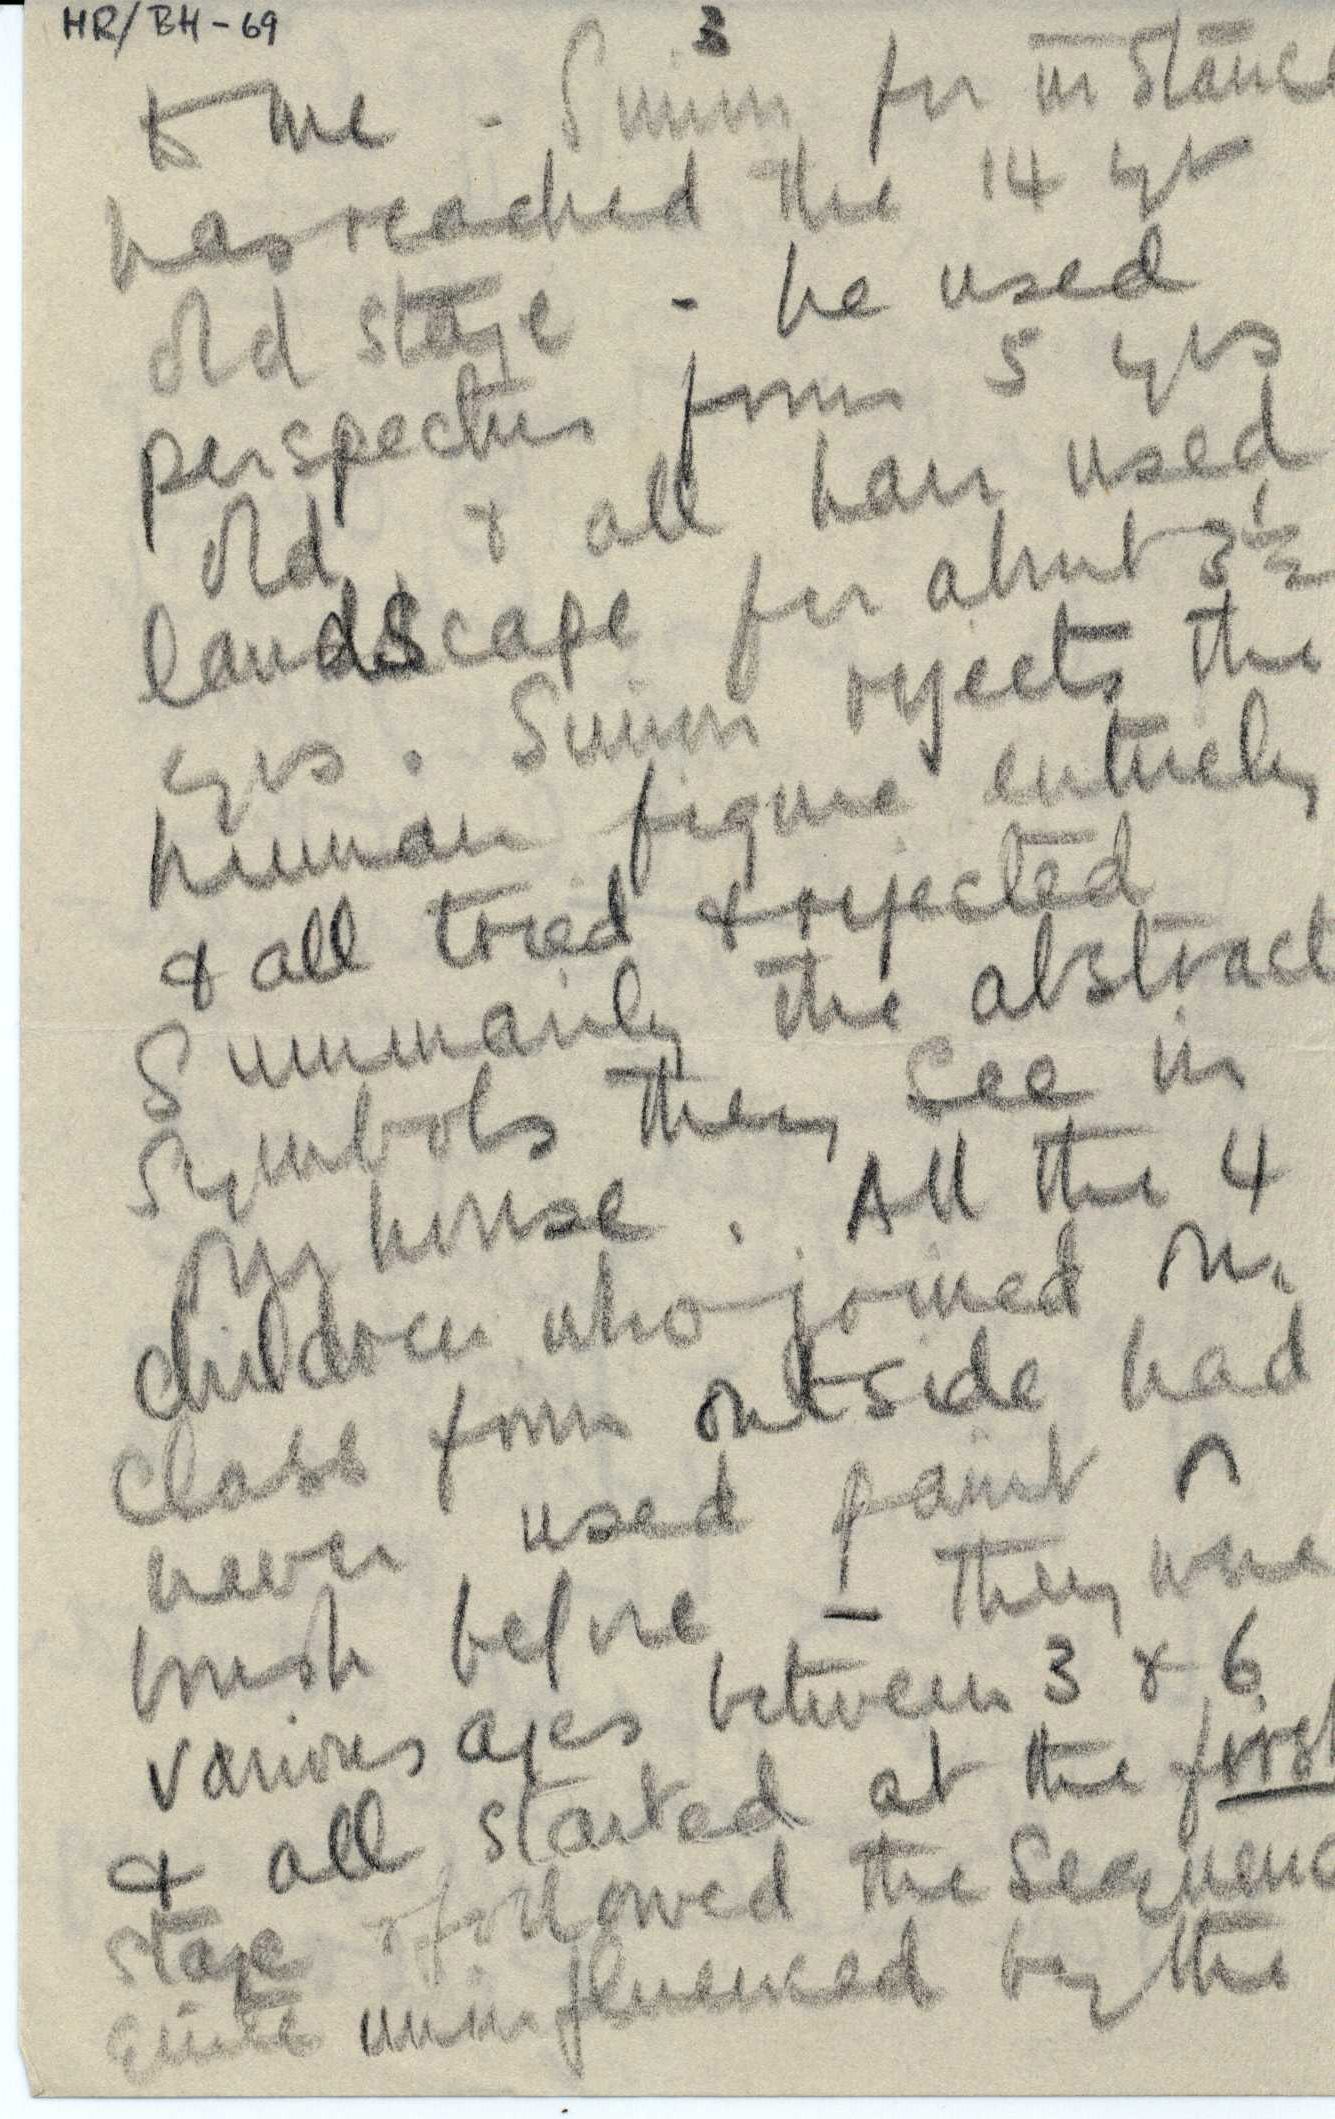 HR/BH-69
3
to me - Simon for instance
has reached the 14 yr
old stage - he used
perspective from 5 yrs
old, & all have used
landscape for about 3½
yrs. Simon rejects the
human figure entirely
& all tried & rejected
summarily the abstract
symbols they see in
my house. All the 4
children who joined my
class from outside had
never used paint or
brush before - they were
various ages between 3 & 6
& all started at the first
stage & followed the sequenc
quite uninfluenced by the